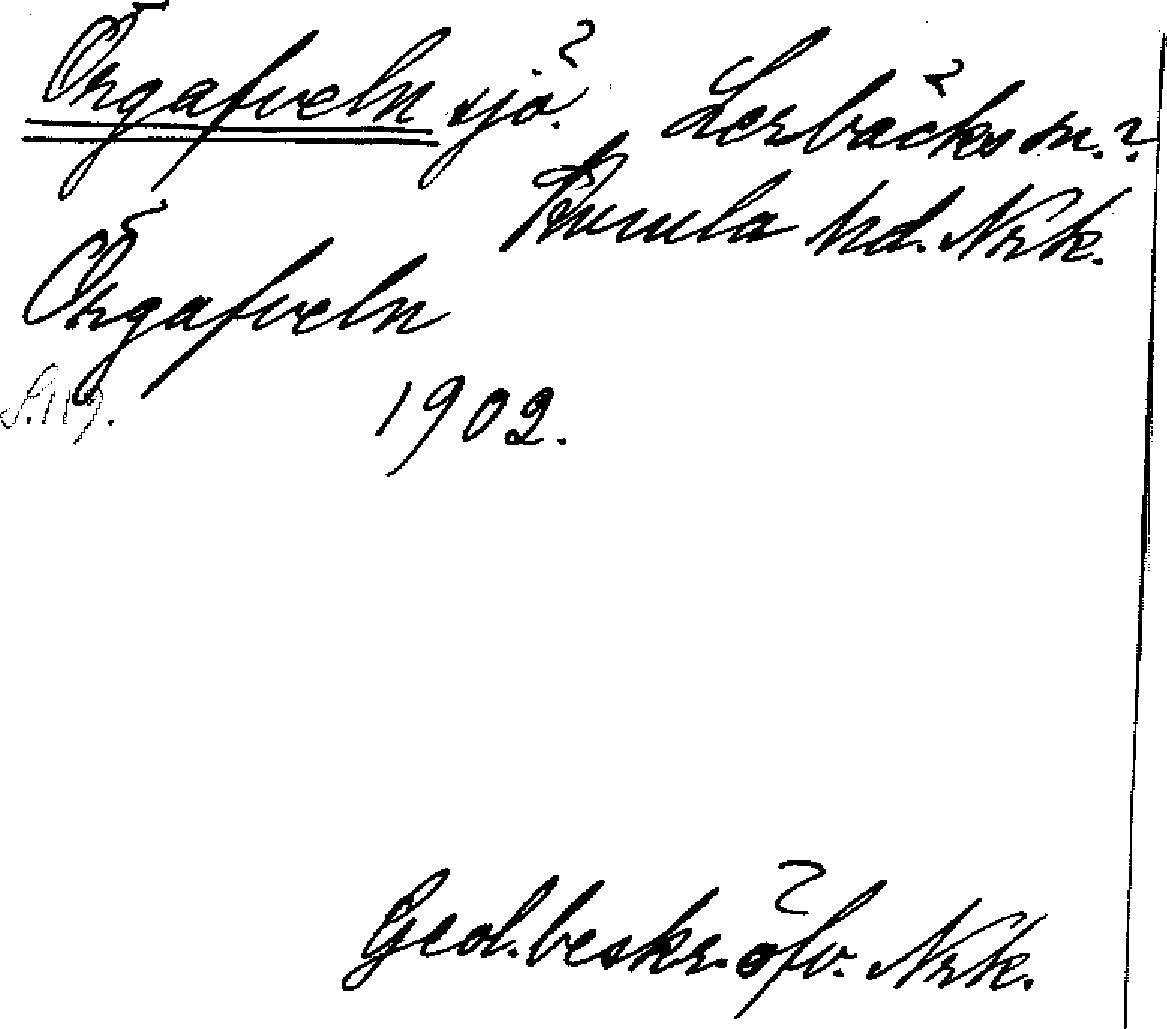 Örgafveln sjö. Lerbäcks sn.?
Kumla hd. Nrk.
Örgafveln
S. 119.
1902.
Geol. beskr. öfv. Nrk.